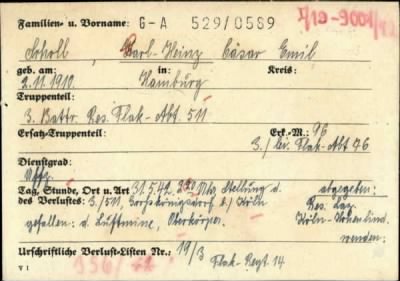 Familien- u. Vorname: G-A 529/0589
Scholl, Karl-Heinz Cäsar Emil
geb. am: in: Kreis:
2.11.1910 Hamburg
Truppenteil:
3. Battr. Res. Flak-Abt. 511
Ersatz-Truppenteil: Erk.-M.: 96
3./ lei. Flak-Abt 76
Dienstgrad:
Uffz.
Tag, Stunde, Ort u. Art 31.5.42, Uhr, Stellung d. abgegeben:
des Verlustes: 3./511, b/ Köln Res. Laz.
gefallen: d. Luftmine, Oberkörper. Köln-Hohenlind
wenden:
Urschriftliche Verlust-Listen Nr.: 19/3
Flak-Regt. 14
V 1